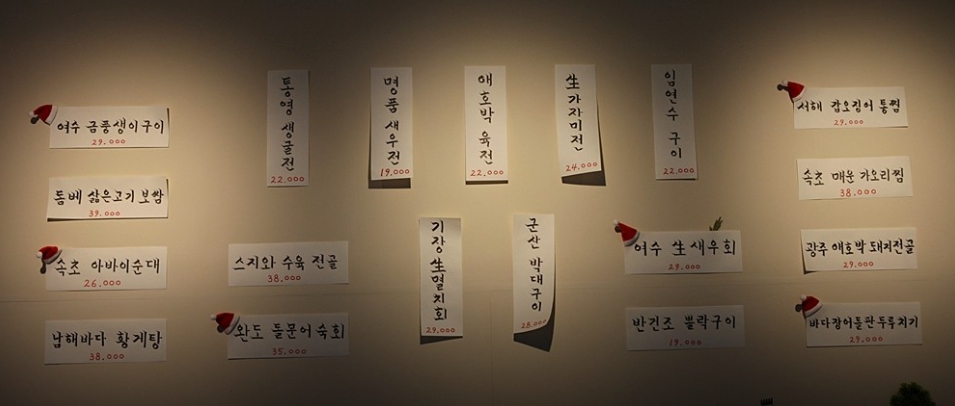 여수 금풍생이구이
29,000
돔베 삶은고기 보쌈
39,000
속초 아바이순대
26,000
남해바다 황게탕
38,000
통영 생굴전
22,000
명품 새우전
19,000
애호박 육전
22,000
生가자미전
24,000
임연수 구이
22,000
스지와 수육 전골
38,000
완도 돌문어숙회
35,000
기장 生멸치회
29,000
군산 박대구이
28,000
여수 生새우회
29,000
반건조 뽈락구이
19,000
서해 갑오징어 통찜
29,000
속초 매운 가오리찜
38,000
광주 애호박 돼지전골
29,000
바다장어돌판두루치기
29,000